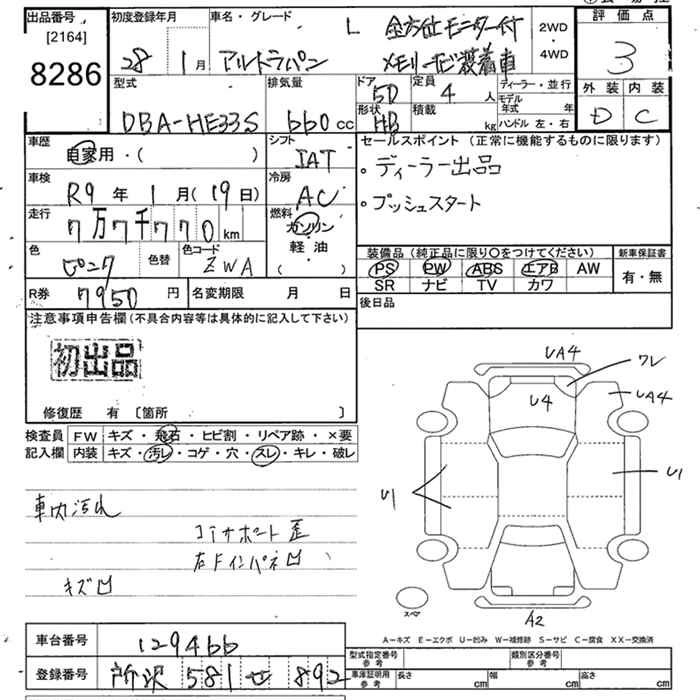 出品番号
[2164]
8286
初度登録年月
28 1月
車名・グレード
L 全方位モニター付
アルトラパン メモリーナビ装着車
2WD
・
4WD
評価点
3
外装 内装
D C
型式
DBA-HE33S
排気量
660 cc
ドア
5D
形状
HB
定員
4 人
積載
kg
ディーラー・並行
モデル
年式 年
ハンドル 左・右
車歴
自家用・( )
シフト
IAT
車検
R9 年 1 月(19日)
冷房
AC
走行
7万7千770 km
燃料
ガソリン
・
軽油
( )
色
ピンク
色替
色コード
ZWA
R券 7950 円
名変期限 月 日
セールスポイント(正常に機能するものに限ります)
。ディーラー出品
。プッシュスタート
装備品(純正品に限り〇をつけてください)
PS PW ABS エアB AW
SR ナビ TV カワ
新車保証書
有・無
後日品
注意事項申告欄(不具合内容等は具体的に記入して下さい)
初出品
修復歴 有 〔箇所 〕
検査員
記入欄
FW キズ・飛石・ヒビ割・リペア跡・×要
内装 キズ・汚レ・コゲ・穴・スレ・キレ・破レ
車内汚れ
コアサポート歪
右Fインパネ凹
キズ凹
UA4
ワレ
U4
UA4
U1
U1
スペア
A2
A-キズ E-エクボ U-凹み W-補修跡 S-サビ C-腐食 XX-交換済
車台番号 129466
登録番号 所沢 581 せ 892
型式指定番号
参考
類別区分番号
参考
車庫証明用
参考
長さ cm
幅 cm
高さ cm